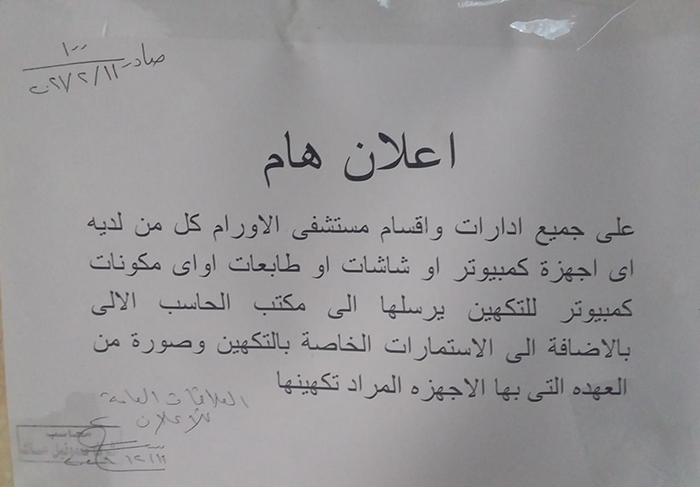 صادر ١٠٠
اعلان هام
على جميع ادارات واقسام مستشفى الاورام كل من لديه
اى اجهزة كمبيوتر او شاشات او طابعات اواى مكونات
كمبيوتر للتكهين يرسلها الى مكتب الحاسب الالى
بالاضافة الى الاستمارات الخاصة بالتكهين وصورة من
العهده التى بها الاجهزه المراد تكهينها
العلاقات العامة
للاعلان
محاسب